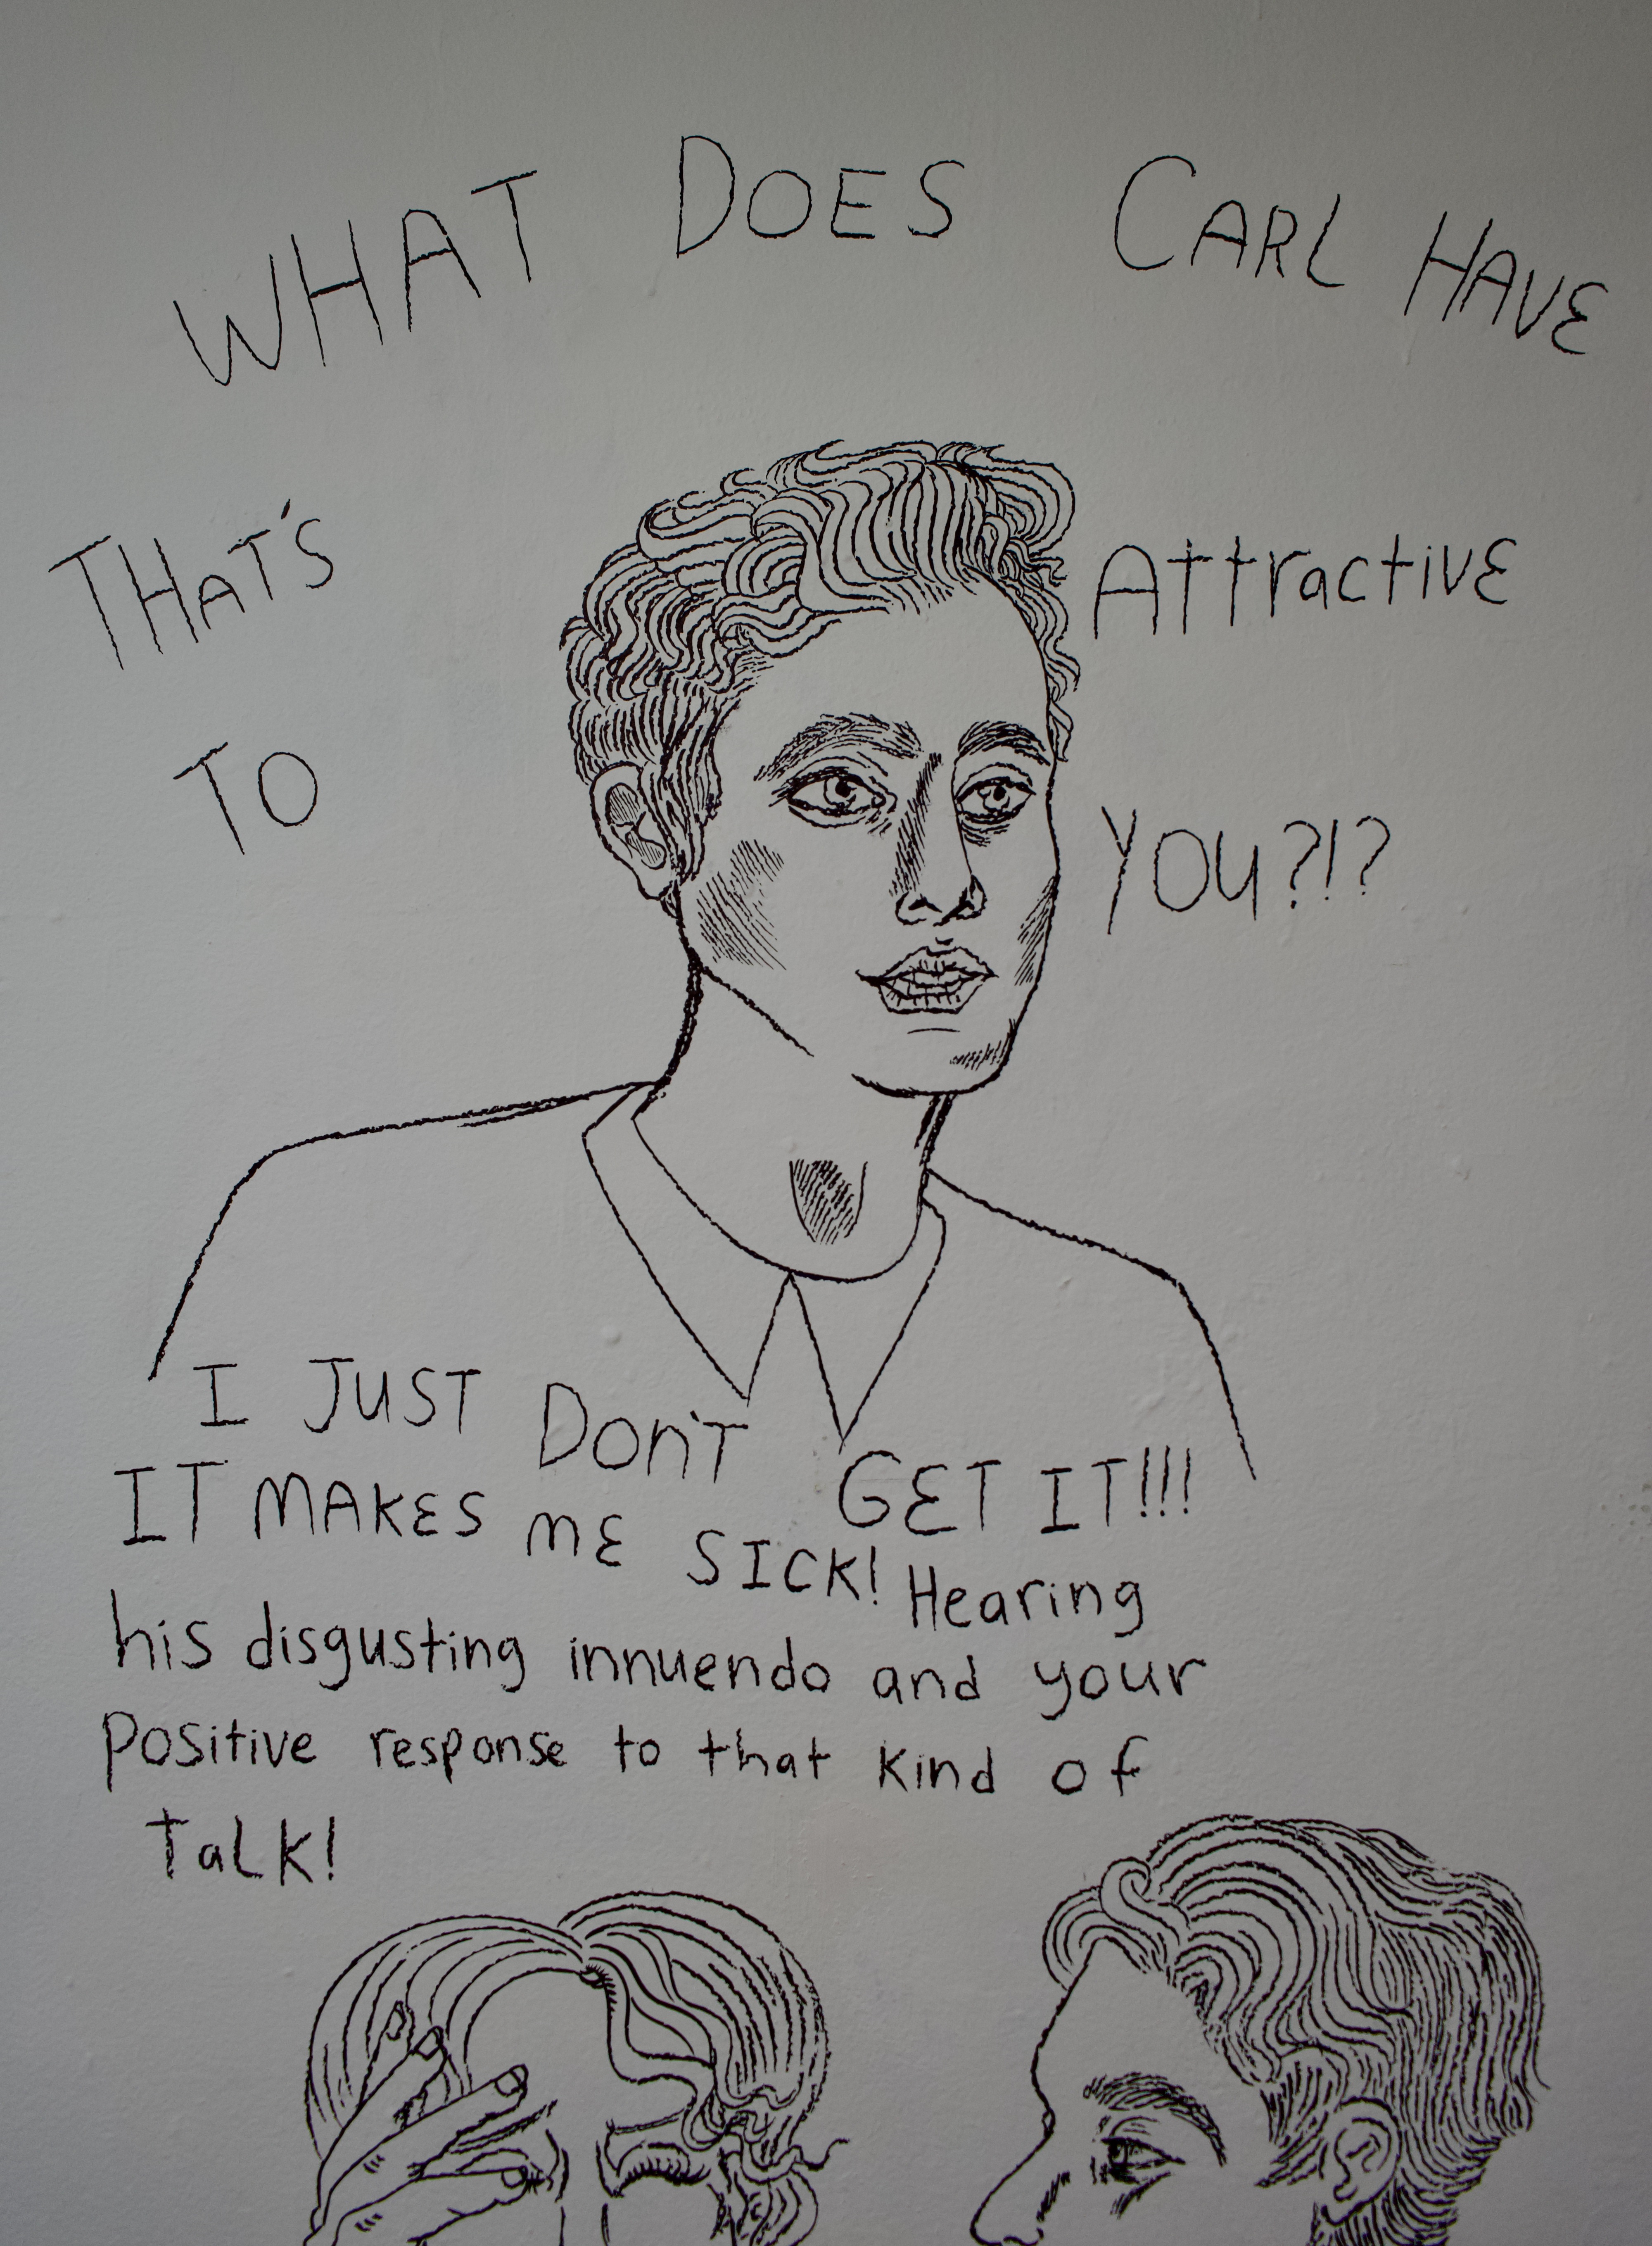 WHAT DOES CARL HAVE
THAT'S Attractive
TO YOU?!?
I JUST DON'T GET IT!!!
IT MAKES ME SICK! Hearing
his disgusting innuendo and your
Positive response to that kind of
TaLK!